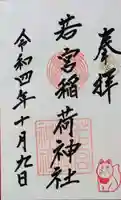 奉拝
若宮稲荷神社
令和四年十月九日